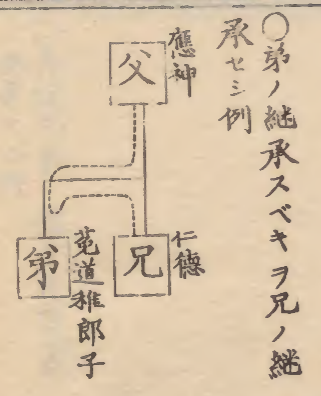 〇弟ノ継承スベキヲ兄ノ継
承セシ例
應神
父
仁徳
兄
菟道稚郎子
弟